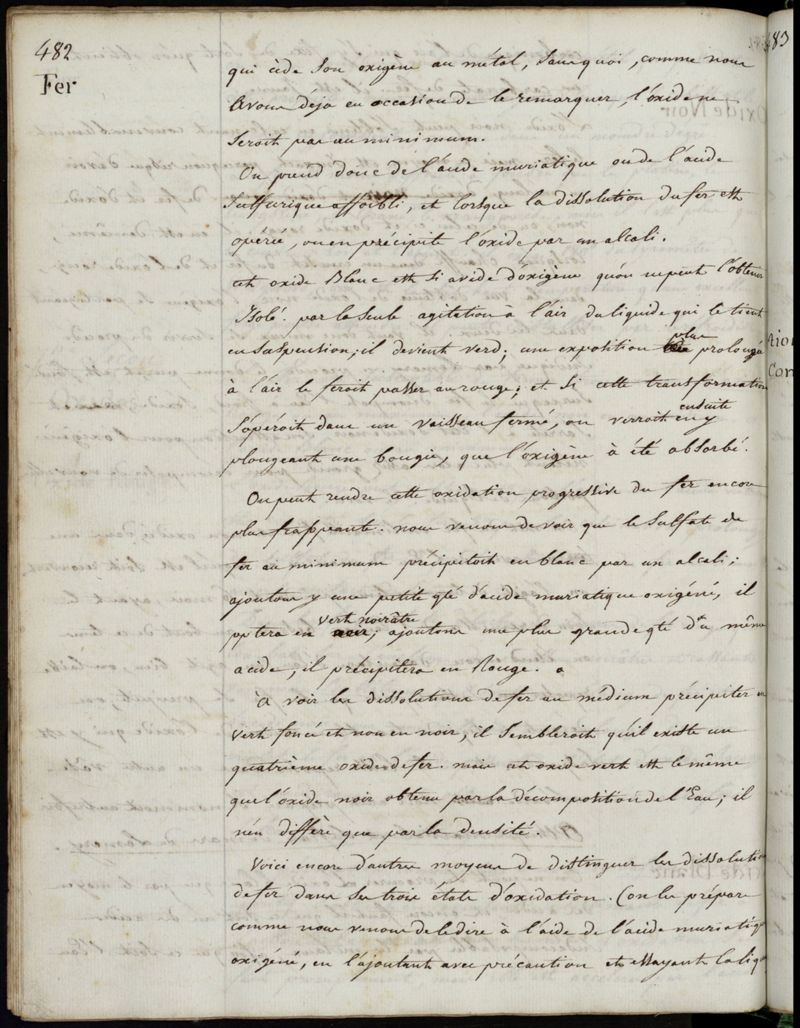 482
Fer
qui cède Son oxigène au métal, Sans quoi, comme nous
Avons déja eu occasion de le remarquer, l'oxide ne
Seroit pas au minimum.
On prend donc de l'acide muriatique ou de l'acide
Sulfurique affoibli, et lorsque la dissolution du fer est
opérée, on en précipite l'oxide par un alcali.
cet oxide Blanc est Si avide d'oxigène qu'on ne peut l'obtenir
Isolé. par la Seule agitation à l'air du liquide qui le tient
en Suspension, il devient verd; une exposition plus prolongé
à l'air le feroit passer au rouge; et Si cette transformation
S'opéroit dans un vaisseau fermé, on verroit ensuite en y
plongeant une bougie, que l'oxigène à été absorbé.
On peut rendre cette oxidation progressive du fer encore
plus frappante. nous venons de voir que le Sulfate de
fer au minimum précipitoit en blanc par un alcali;
ajoutons y une petite qté d'acide muriatique oxigéné, il
pptera en vert noirâtre; ajoutons une plus grande qté du même
acide, il précipitera en Rouge.
à voir les dissolutions de fer au médium précipiter en
vert foncé et non en noir, il Sembleroit qu'il existe un
quatrième oxide de fer. mais cet oxide vert est le même
que l'oxide noir obtenu par la décomposition de l'Eau; il
n'en diffère que par la densité.
Voici encore d'autres moyens de distinguer les dissolutions
de fer dans Ses trois états d'oxidation. (on les prépare
comme nous venons de le dire à l'aide de l'acide muriatiq
oxigéné, en l'ajoutant avec précaution et essayant la liq
83